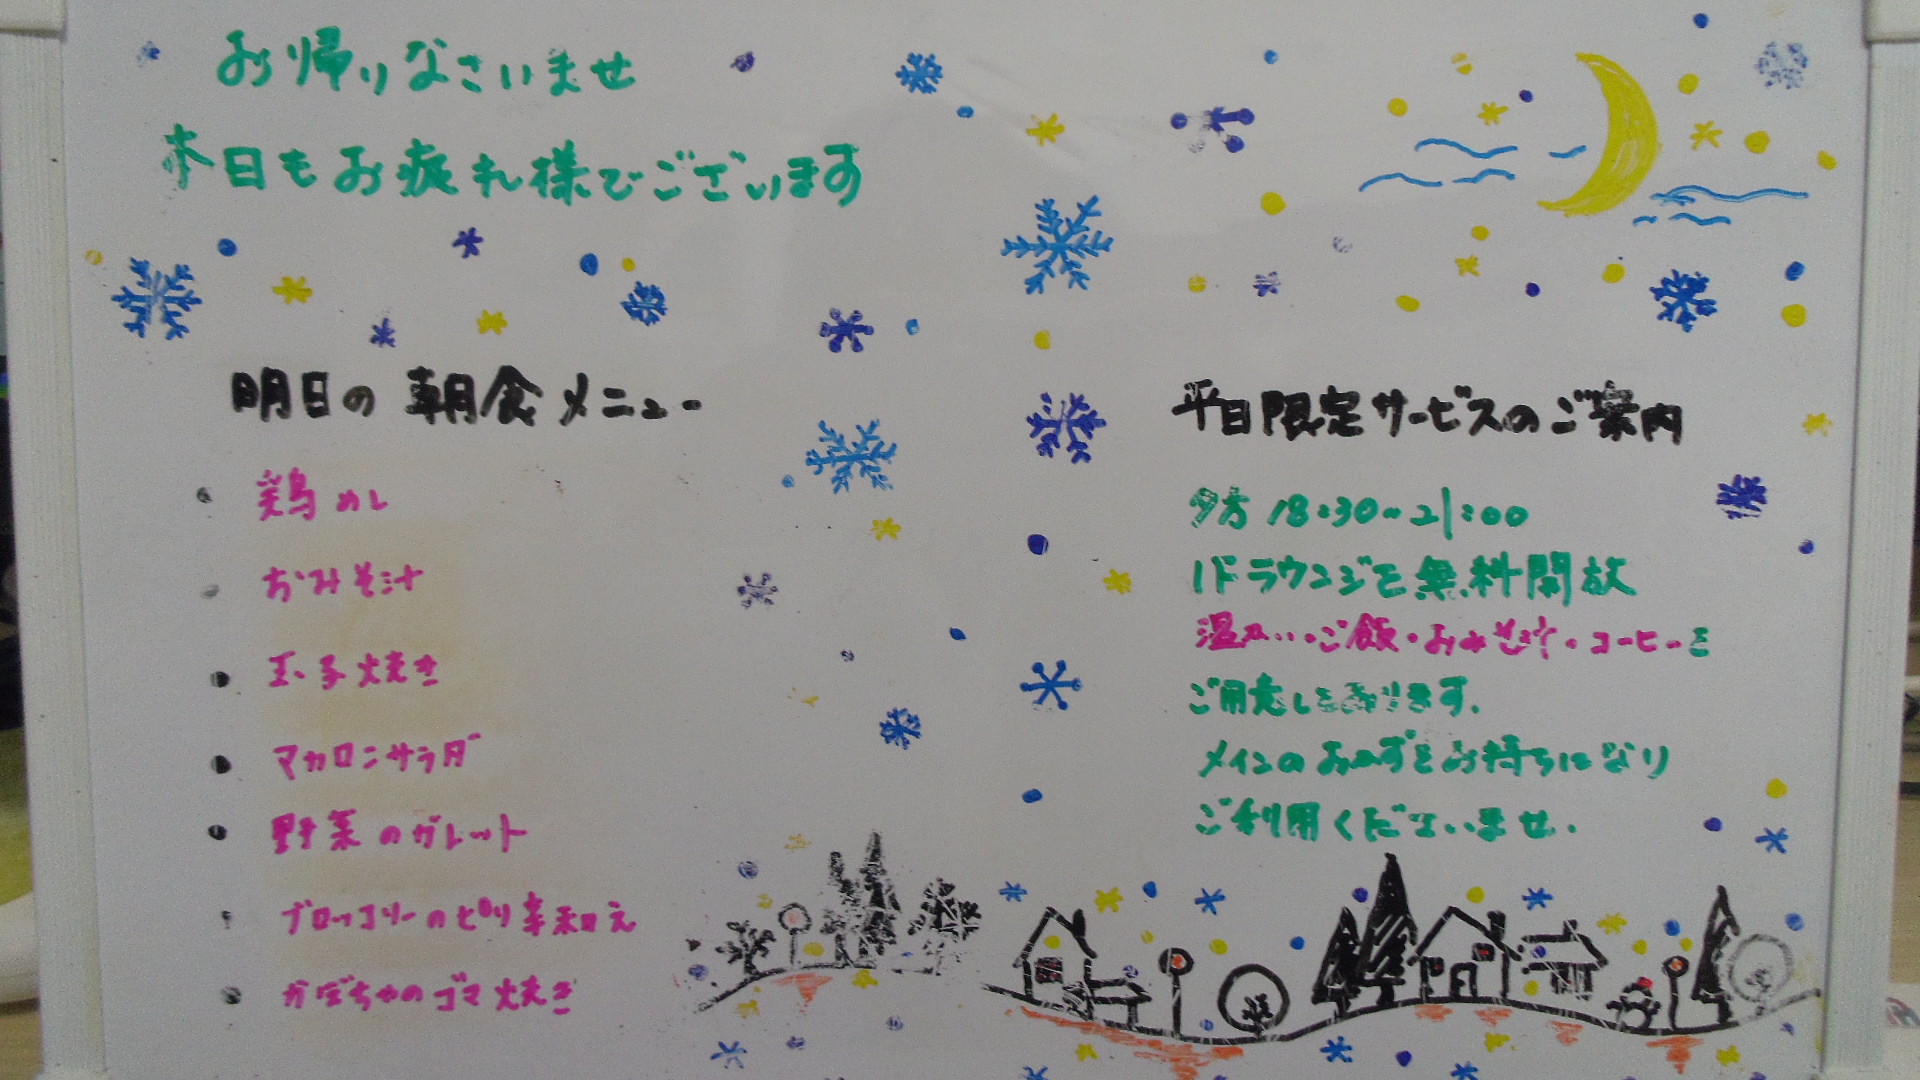 お帰りなさいませ
本日もお疲れ様でございます
明日の朝食メニュー
・鶏めし
・おみそ汁
・玉子焼き
・マカロニサラダ
・野菜のガレット
・ブロッコリーのピリ辛和え
・かぼちゃのゴマ焼き
平日限定サービスのご案内
夕方 18:30〜21:00
1Fラウンジを無料開放
温かい・ご飯・おみそ汁・コーヒーを
ご用意しております。
メインのおかずをお持ちになり
ご利用くださいませ.